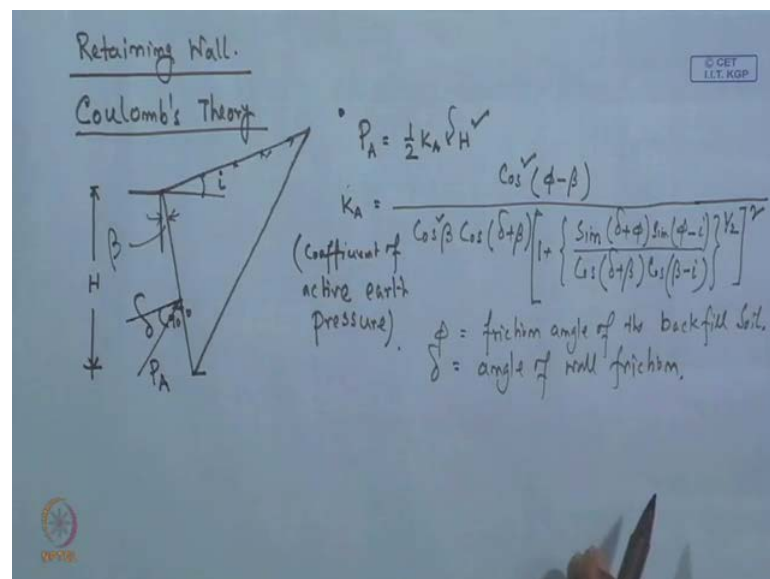 Retaining Wall.
© CET
I.I.T. KGP
Coulomb's Theory
P_A = 1/2 K_A γ H²
K_A = Cos²(φ-β) / Cos²β Cos(δ+β) [1 + { Sin(δ+φ) Sin(φ-i) / Cos(δ+β) Cos(β-i) }^1/2]²
(Coefficient of
active earth
pressure).
i
β
H
δ
90°
P_A
φ = friction angle of the backfill Soil.
δ = angle of wall friction.
NPTEL